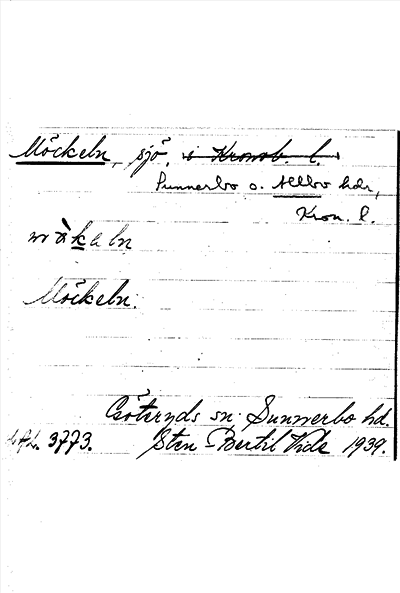 Möckeln, sjö, i Kronob. l.
Sunnerbo o. Allbo hdr,
Kron. l.
Möckeln.
Göteryds sn. Sunnerbo hd.
3773. Sten-Bertil Vide 1939.